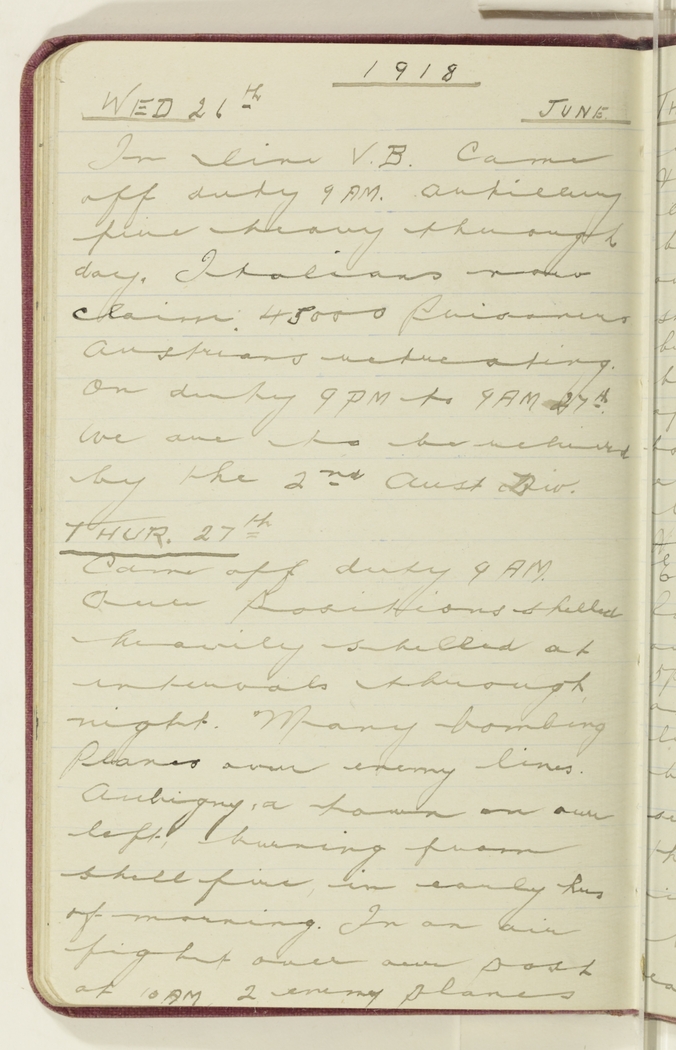 1918
WED 26th JUNE
In line V.B. Came
off duty 9 AM. artillery
fire heavy through
day. Italians now
claim 45000 Prisoners
Austrians retreating.
On duty 9 PM to 9AM 27th.
We are to be relieved
by the 2nd Aust Div.
THUR. 27th
Came off duty 9 AM.
Our Positions shelled
heavily shelled at
intervals through
night. Many bombing
Planes over enemy lines.
Aubigny, a town on our
left, burning from
shell fire, in early hrs
of morning. In an air
fight over our post
at 10 AM 2 enemy planes